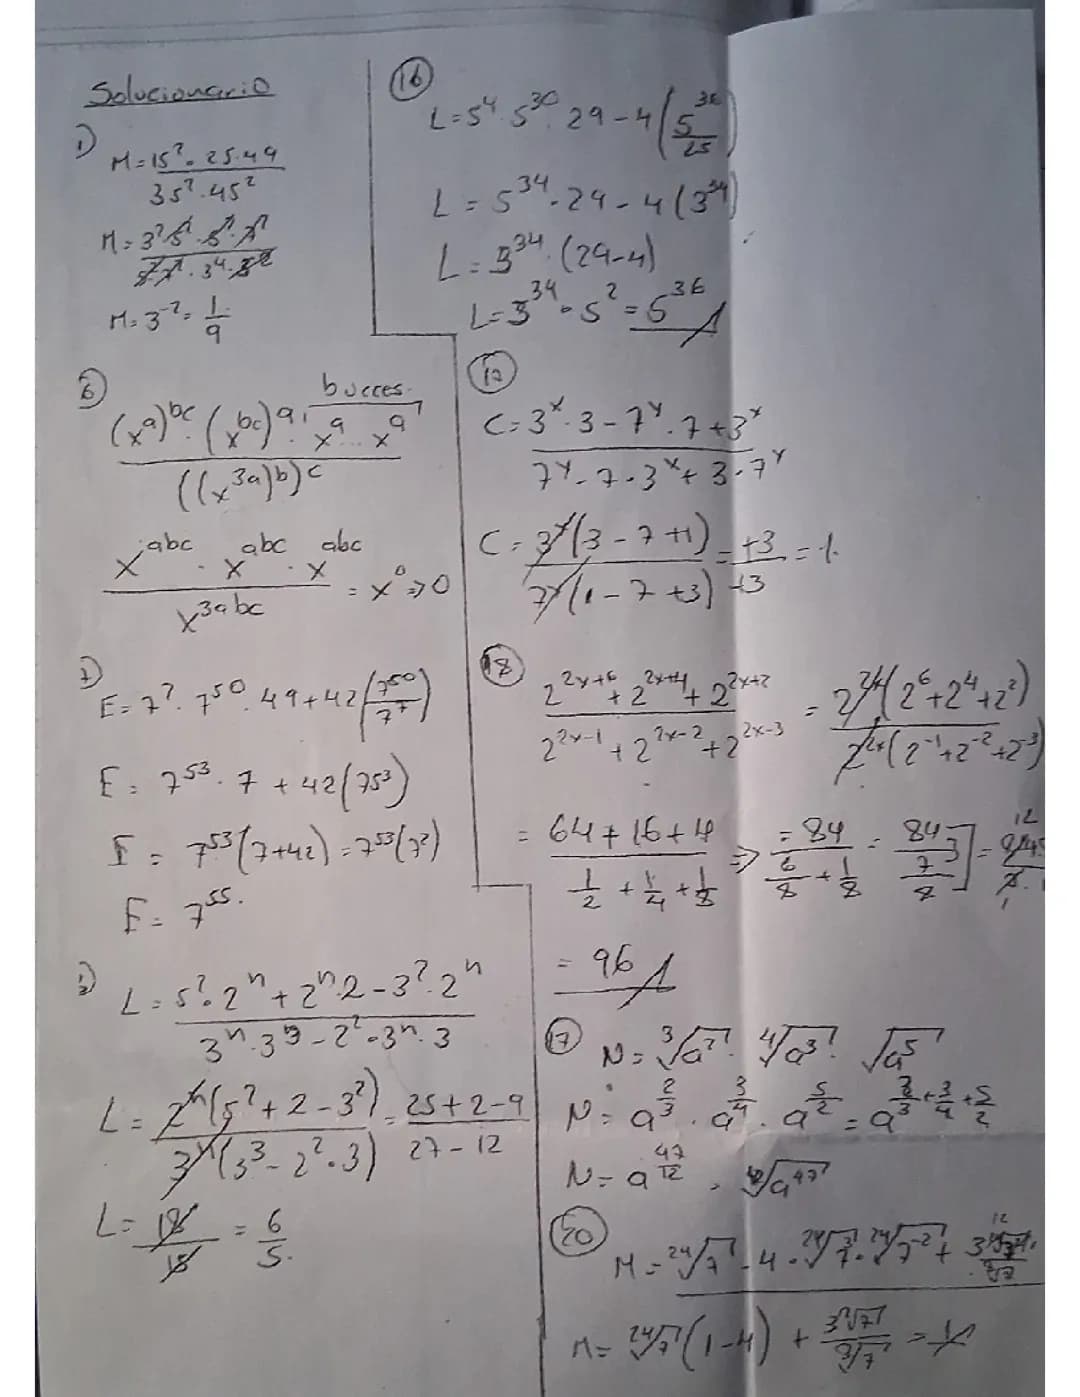 Solucionario
1)
M = 15². 25.49 / 35².45²
M = 3² 5² . 5² . 7² / 5² 7² . 3⁴ . 5²
M = 3⁻² = 1/9
6)
b veces.
(x^a)^bc . (x^bc)^a . x^a ... x^a / ((x^3a)^b)^c
x^abc . x^abc . x^abc / x^3abc = x^0 => 0
7)
E = 7² . 7^50 . 49 + 42 (7^50 / 7^7)
E = 7^53 . 7 + 42 (75³)
E = 7^53 (7+42) = 7^53 (7²)
E = 7^55.
L = 5² . 2^n + 2^n . 2 - 3² . 2^n / 3^n . 3^3 - 2² . 3^n . 3
L = 2^n (5² + 2 - 3²) / 3^n (3³ - 2² . 3) = 25 + 2 - 9 / 27 - 12
L = 18 / 15 = 6 / 5.
16
L = 5⁴ . 5^30 . 29 - 4 (5^36 / 25)
L = 5^34 . 29 - 4 (3^34)
L = 5^34 . (29-4)
L = 5^34 . 5² = 5^36
17
C = 3^x . 3 - 7^x . 7 + 3^x / 7^x - 7 . 3^x + 3 . 7^x
C = 3^x (3 - 7 + 1) / 7^x (1 - 7 + 3) = +3 / +3 = 1.
18
2^2x+6 + 2^2x+4 + 2^2x+2 / 2^2x-1 + 2^2x-2 + 2^2x-3 = 2^2x (2⁶ + 2⁴ + 2²) / 2^2x (2⁻¹ + 2⁻² + 2⁻³)
= 64 + 16 + 4 / 1/2 + 1/4 + 1/8 => = 84 / 6/8 + 1/8 = 84 / 7/8 ] = 12
= 96
17
N = ³√a² . ⁴√a³ . √a⁵
N = a^2/3 . a^3/4 . a^5/2 = a^2/3 + 3/4 + 5/2
N = a^47/12 = ¹²√a^47
20
M = ²⁴√7 - 4 . ²⁴√7³ . ²⁴√7⁻² +
M = ²⁴√7 (1-4) +